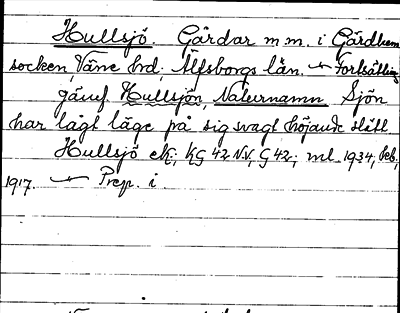 Hullsjö. Gårdar m m. i Gärdhem
socken, Väne hrd; Älfsborgs län. — Fortsättning
gäruf. Hullsjön, Naturnamn Sjön
har lågt läge på sig svagt höjande slätt.
Hullsjö ek; KG 42 N.V, G 42; ml. 1934; feb,
1917. — Prep. i